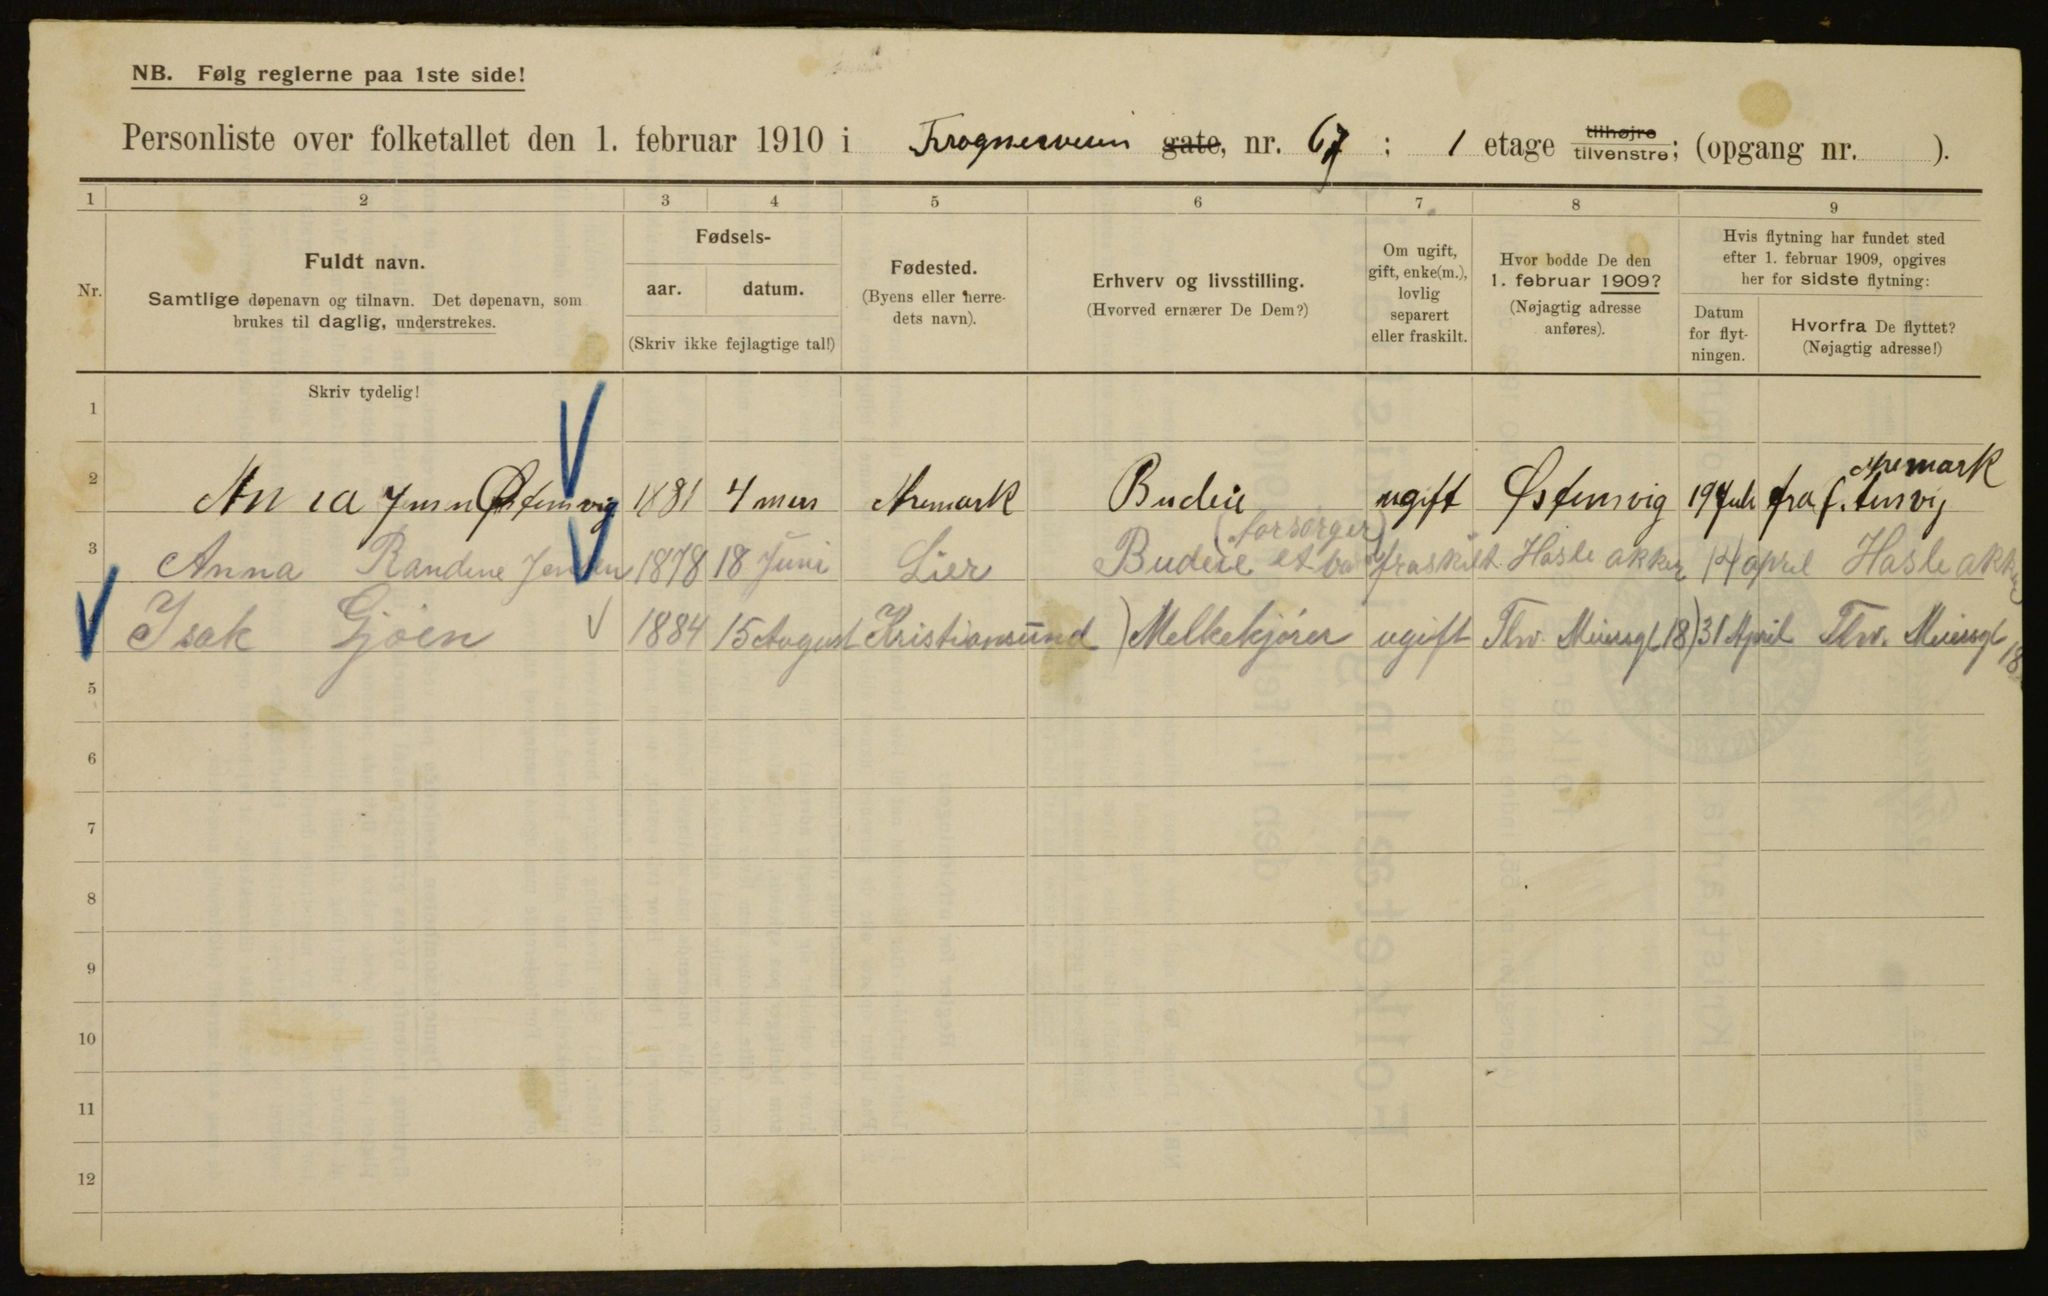 NB. Følg reglerne paa 1ste side!
Personliste over folketallet den 1. februar 1910 i Frognerveien gate, nr. 67 ; 1 etage tilhøjre tilvenstre; (opgang nr. ).
1 2 3 4 5 6 7 8 9
Nr.
Fuldt navn.
Samtlige døpenavn og tilnavn. Det døpenavn, som
brukes til daglig, understrekes.
Fødsels-
aar. datum.
(Skriv ikke fejlagtige tal!)
Fødested.
(Byens eller herre-
dets navn).
Erhverv og livsstilling.
(Hvorved ernærer De Dem?)
Om ugift,
gift, enke(m.),
lovlig
separert
eller fraskilt.
Hvor bodde De den
1. februar 1909?
(Nøjagtig adresse
anføres).
Hvis flytning har fundet sted
efter 1. februar 1909, opgives
her for sidste flytning:
Datum
for flyt-
ningen.
Hvorfra De flyttet?
(Nøjagtig adresse!)
Skriv tydelig!
1
2 Østensvig 1881 4 Aremark Budeie ugift Østensvig 19 fra Aremark
3 Anna Randine Jensen 1878 18 Juni Lier Budeie (forsørger) et fraskilt Hasle akker 14 april Hasle akker
Isak Gjøen 1884 15 August Kristiansund Melkekjører ugift Thv. Meiersgt 18 31 April Thv. Meiersgt 18
5
6
7
8
9
10
11
12